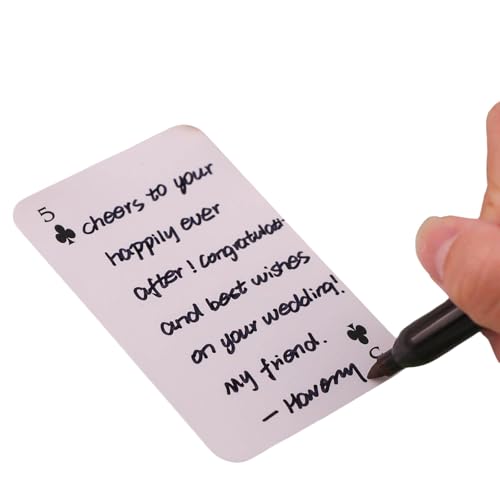 5
cheers to your
happily ever
after! congratulati
and best wishes
on your wedding!
my friend.
5